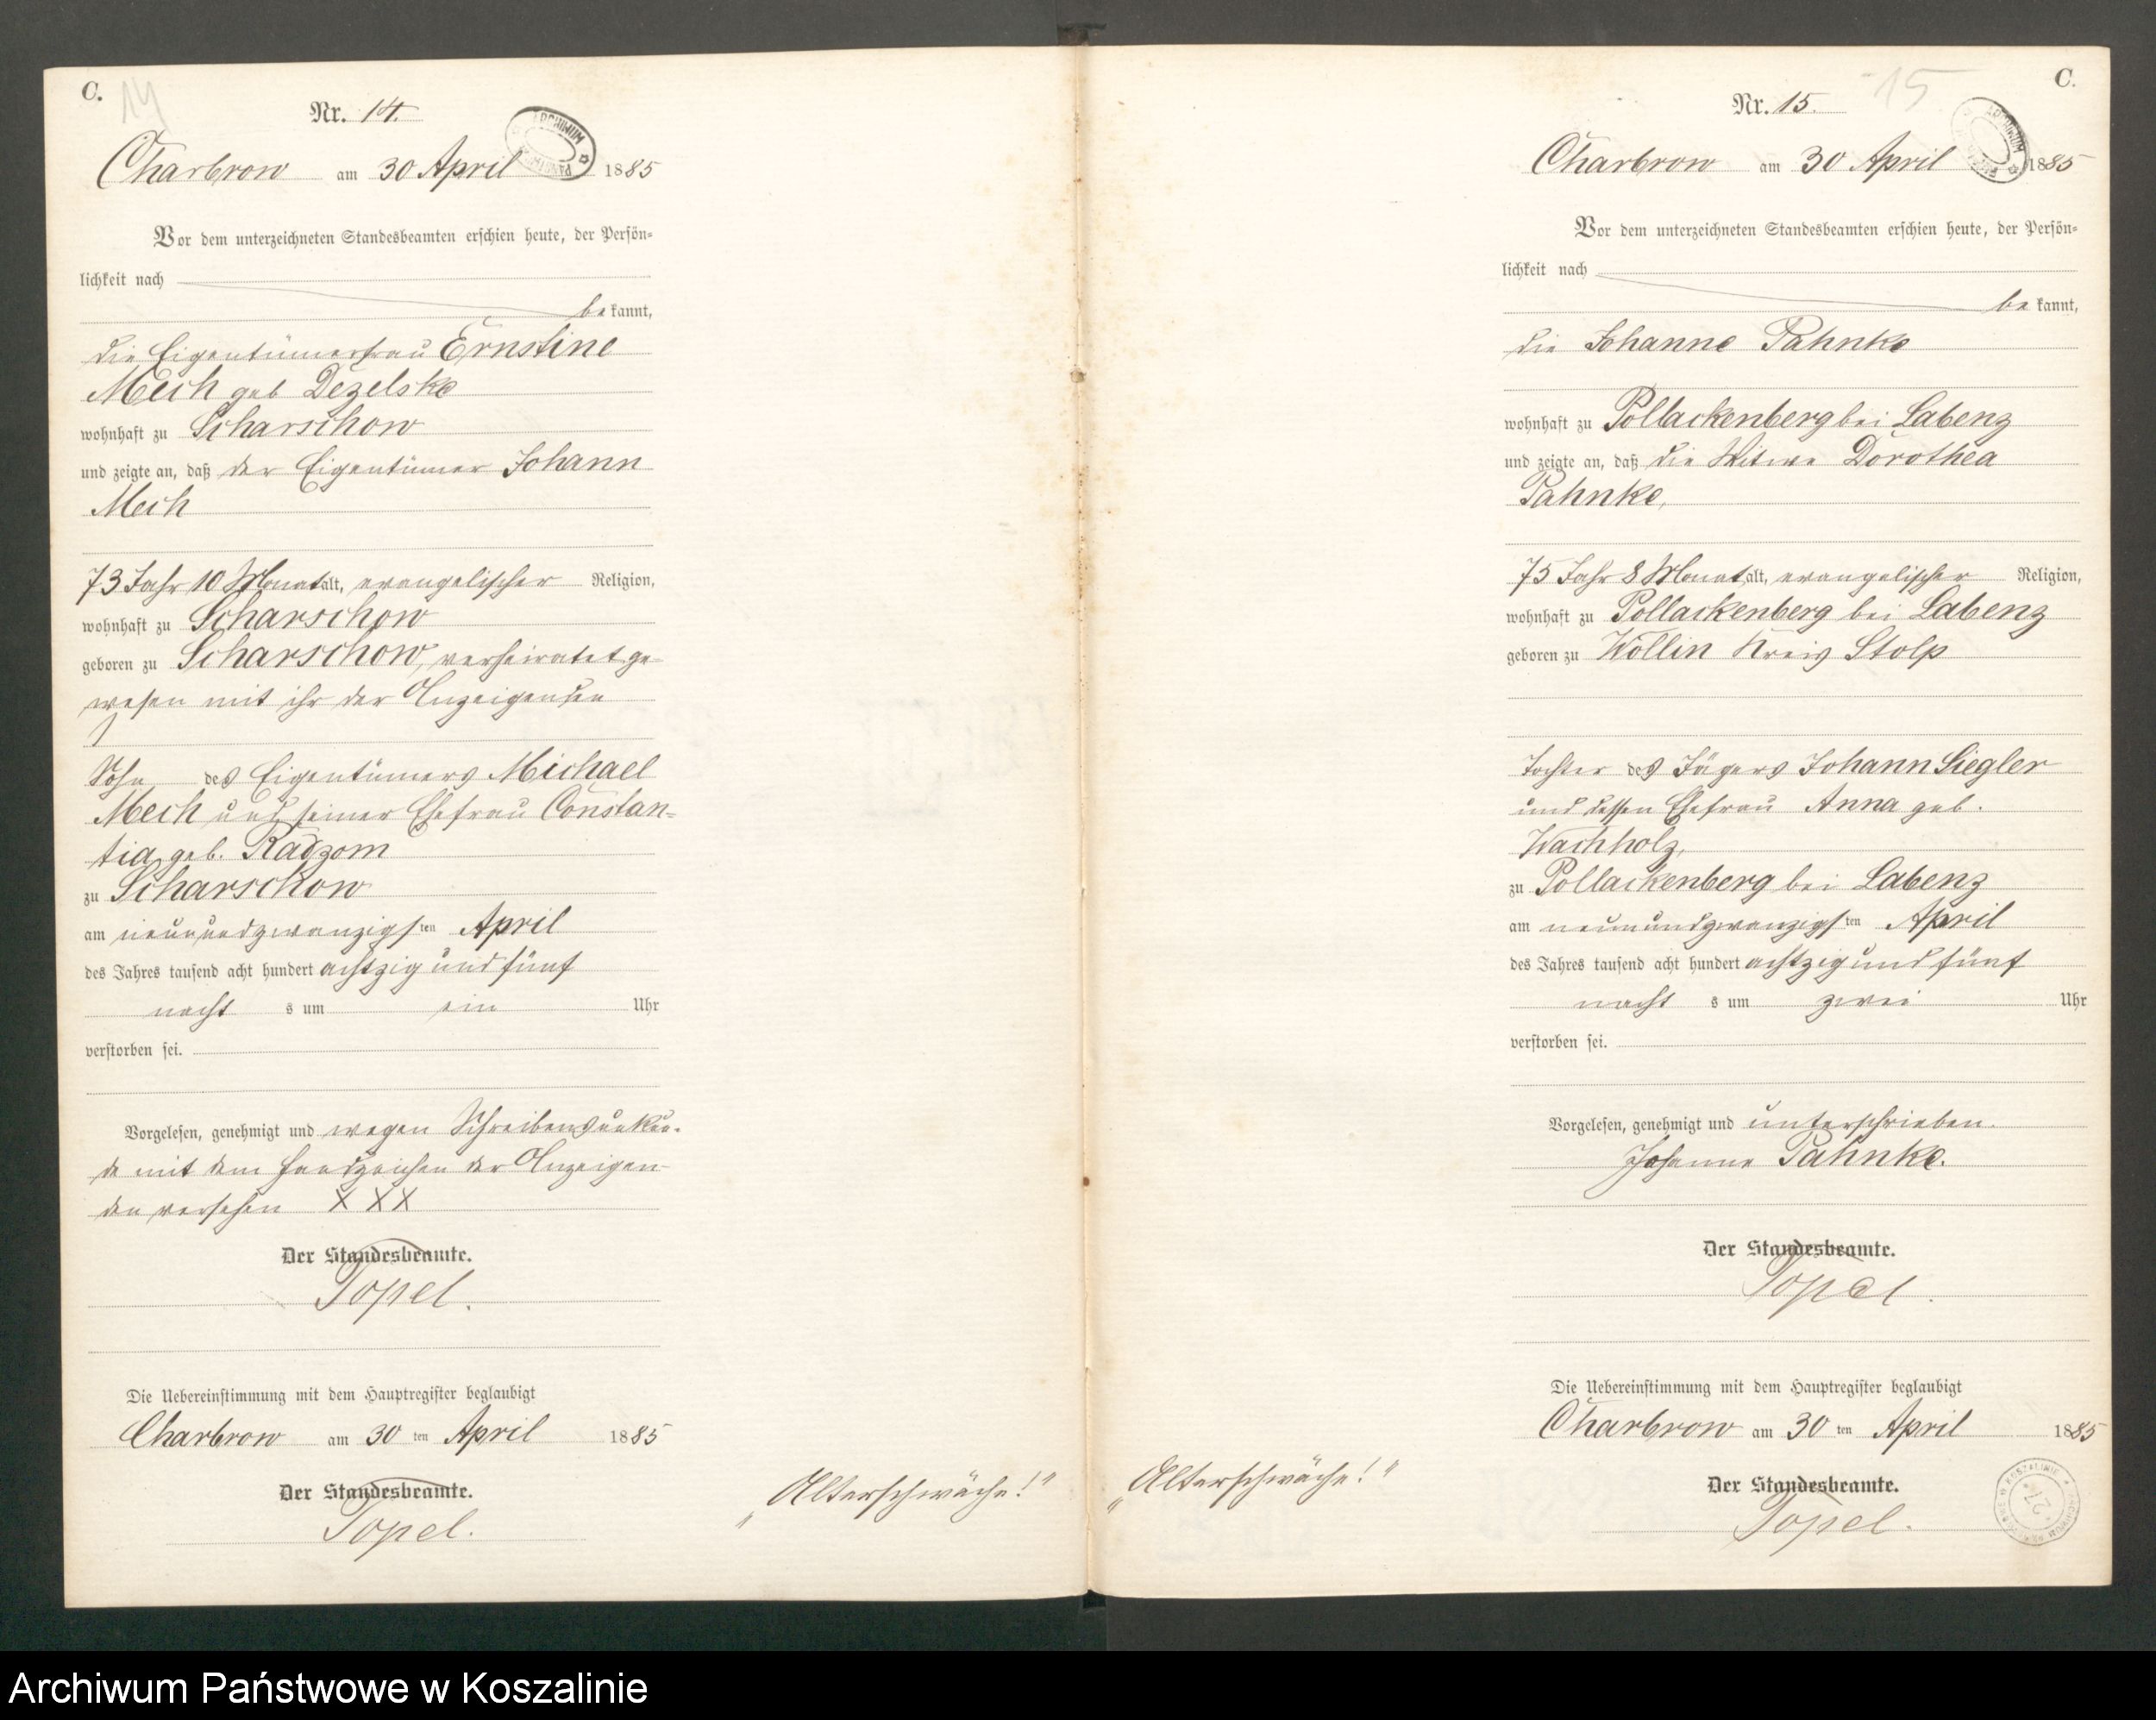 C.
14
Nr. 14.
Charbrow am 30 April 1885
Vor dem unterzeichneten Standesbeamten erschien heute, der Persön-
lichkeit nach
be kannt,
die Eigentümerfrau Ernstine
Mech geb Dezelske
wohnhaft zu Scharschow
und zeigte an, daß der Eigentümer Johann
Mech
73 Jahr 10 Monat alt, evangelischer Religion,
wohnhaft zu Scharschow
geboren zu Scharschow, verheiratet ge-
wesen mit ihr der Anzeigenden
Sohn des Eigentümers Michael
Mech und seiner Ehefrau Constan-
tia geb. Radzom
zu Scharschow
am neunundzwanzigsten April
des Jahres tausend acht hundert achtzig und fünf
nacht s um ein Uhr
verstorben sei.
Vorgelesen, genehmigt und wegen Schreibensunkun-
de mit dem Handzeichen der Anzeigen-
den versehen X X X
Der Standesbeamte.
Topel.
Die Uebereinstimmung mit dem Hauptregister beglaubigt
Charbrow am 30 ten April 1885
Der Standesbeamte.
Topel.
„Alterschwäche!"
15
C.
Nr. 15.
Charbrow am 30 April 1885
Vor dem unterzeichneten Standesbeamten erschien heute, der Persön-
lichkeit nach
be kannt,
die Johanne Pahnke
wohnhaft zu Pollackenberg bei Labenz
und zeigte an, daß die Witwe Dorothea
Pahnke,
75 Jahr 8 Monat alt, evangelischer Religion,
wohnhaft zu Pollackenberg bei Labenz
geboren zu Wollin Kreis Stolp
Tochter des Jägers Johann Siegler
und dessen Ehefrau Anna geb.
Wachholz,
zu Pollackenberg bei Labenz
am neunundzwanzigsten April
des Jahres tausend acht hundert achtzig und fünf
nacht s um zwei Uhr
verstorben sei.
Vorgelesen, genehmigt und unterschrieben.
Johanne Pahnke.
Der Standesbeamte.
Topel.
Die Uebereinstimmung mit dem Hauptregister beglaubigt
Charbrow am 30 ten April 1885
Der Standesbeamte.
Topel.
„Alterschwäche!"
Archiwum Państwowe w Koszalinie